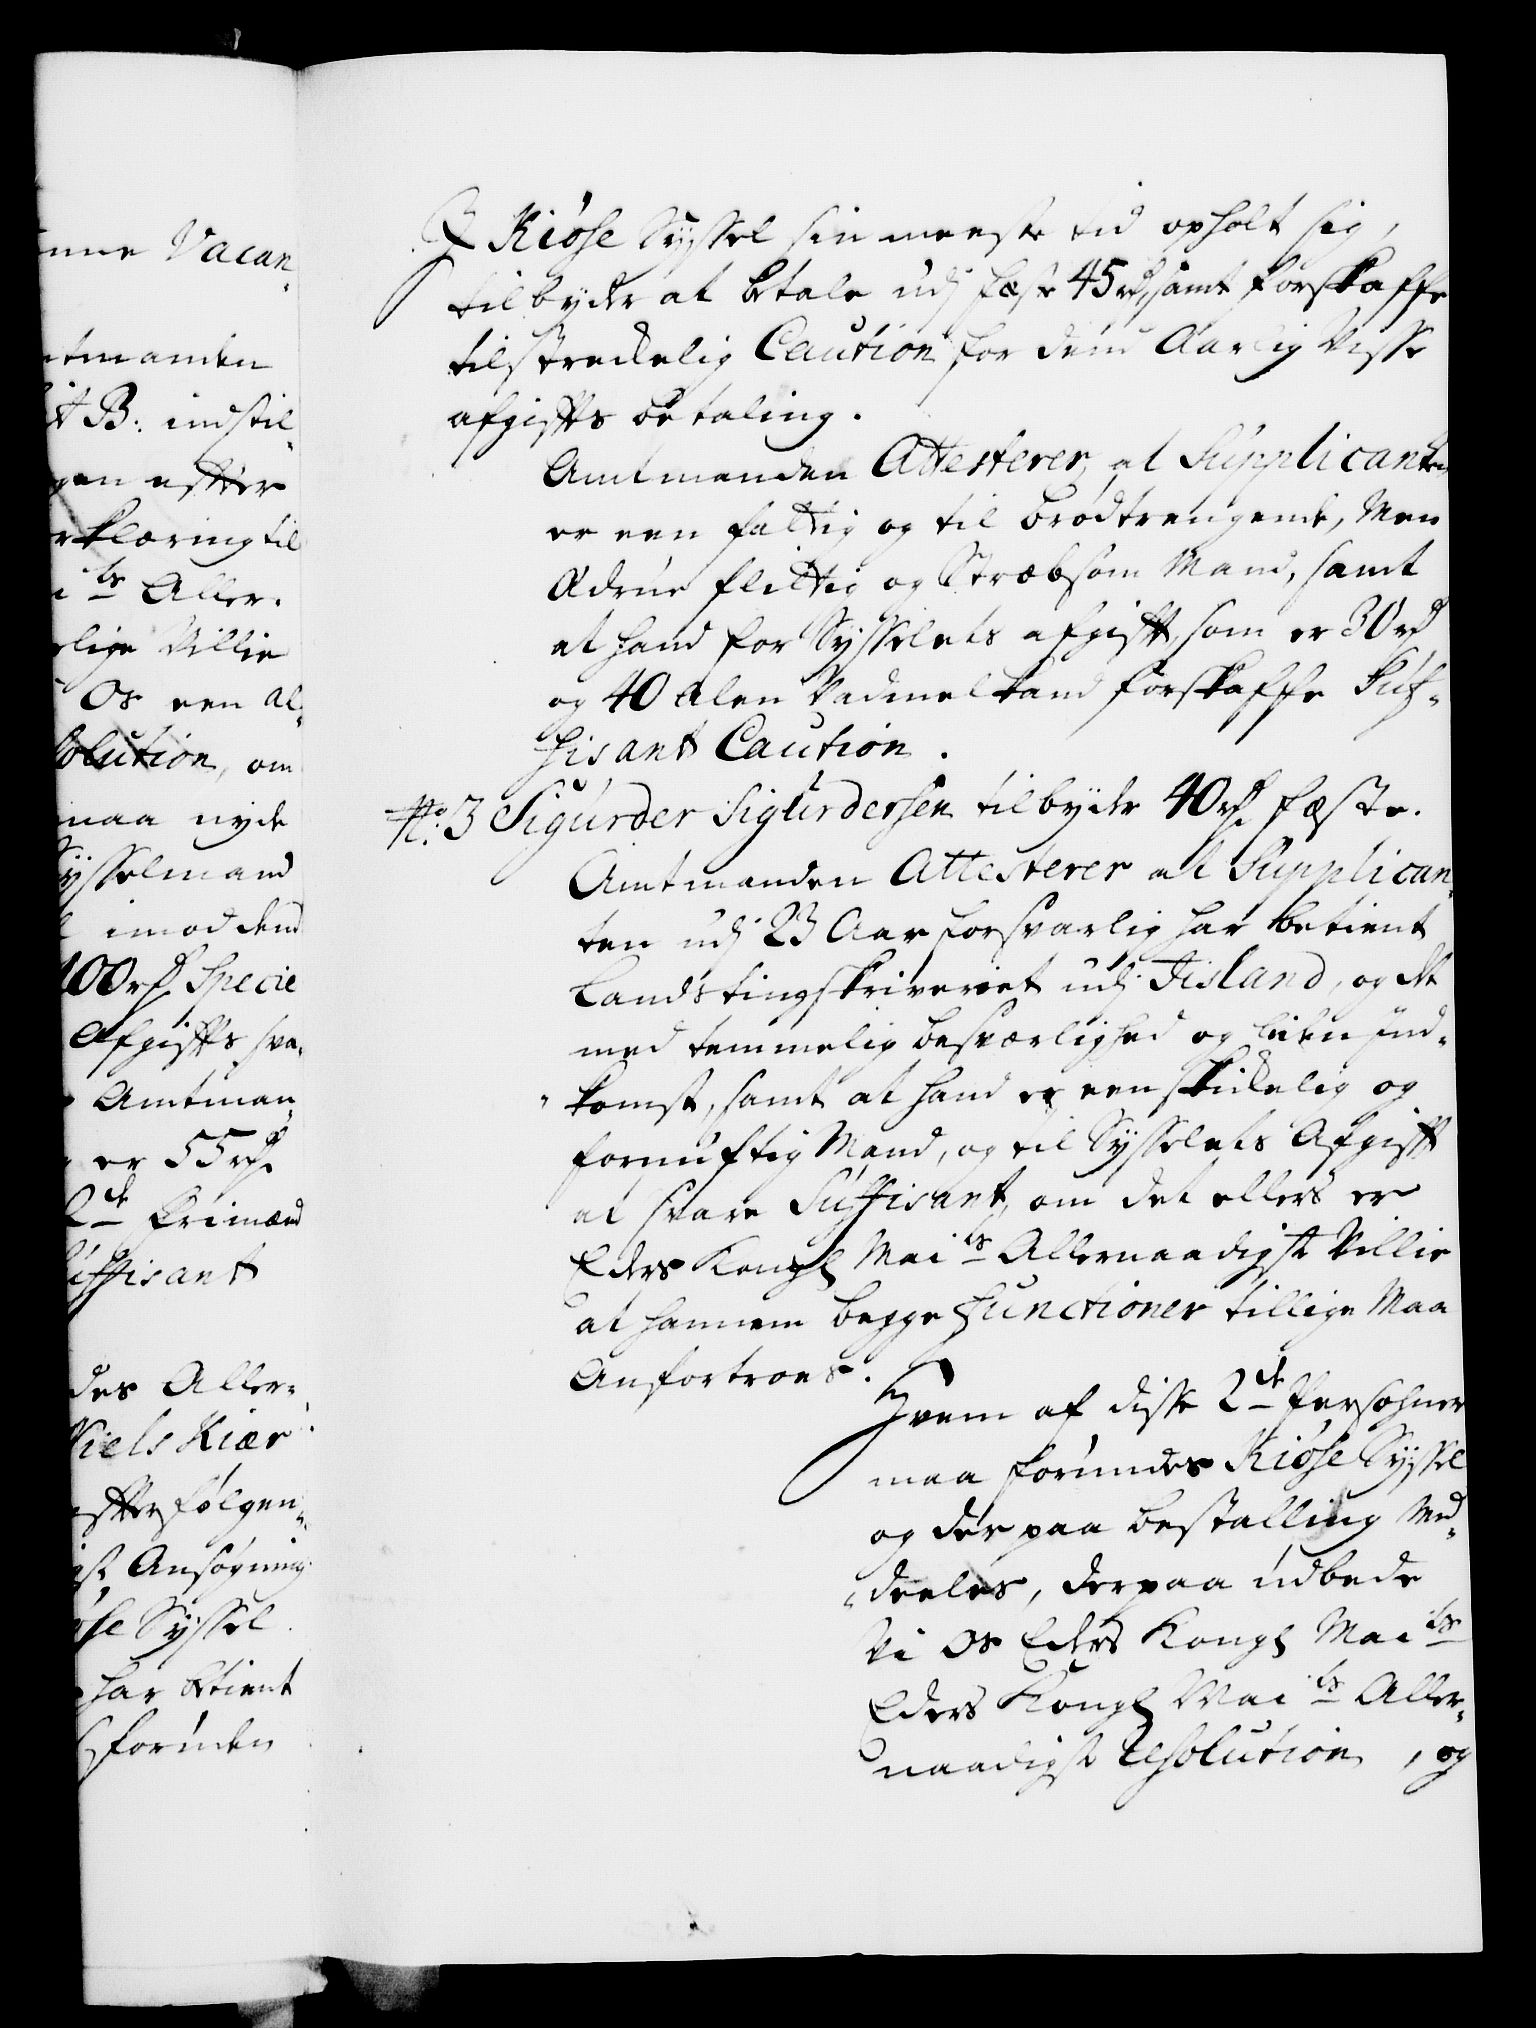 nne Vacan„
tmanden
t B: indstil„
gen efter
rklæring til
i ts Aller„
rlige Villie
Os een al„
solution, om
maa nyde
Sysselmand
imod dend
100 rdr Specie
Afgiffts sva„
Amtman„
er 55 rdr
2de Frimænd
uffisant
des Aller„
Niels Kiær
efterfølgen„
ist Ansøgning
øse Syssel
har betient
foruden
I Kiøse Syssel sin meeste tid opholt sig,
tilbyder at betale udj fæste 45 rdr, samt forskaffe
tilstreckelig Caution for dend Aarlig Visse
afgiffts betaling.
Amtmanden Attesterer, at Supplicanten
er een fattig og til brødtrengende, Men
Ædrue flittig og Stræbsom Mand, samt
at hand for Sysselets afgifft, som er 30 rdr
og 40 Alen Vadmel kand forskaffe Suf„
fisant Caution.
No. 3 Sigurder Sigurdersen tilbyder 40 rdr fæste.
Amtmanden Attesterer at Supplican„
ten udj 23 Aar forsvarlig har betient
Landstingskriveriet udj Iisland, og det
med temmelig besværlighed og liden Ind„
„komst, samt at hand er een skickelig og
fornuftig Mand, og til Sysselets Afgifft
at svare Suffisant, om det ellers er
Eders Kongl Mai ts Allernaadigste Villie
at hannem begge Functioner tillige Maa
Anfortroes.
Hvem af disse 2de Persohner
maa forundes Kiøse Syssel
og der paa bestalling Med„
„deeles, derpaa udbede
Vi os Eders Kongl Mai ts
Eders Kongl Mai ts Aller„
naadigste Resolution, og